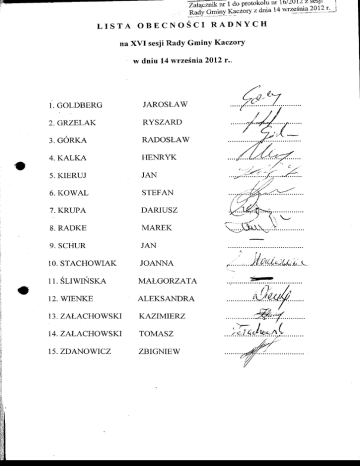 Załącznik nr 1 do protokołu nr 16/2012 z sesji
Rady Gminy Kaczory z dnia 14 września 2012 r.
LISTA OBECNOŚCI RADNYCH
na XVI sesji Rady Gminy Kaczory
w dniu 14 września 2012 r..
1. GOLDBERG JAROSŁAW
2. GRZELAK RYSZARD
3. GÓRKA RADOSŁAW
4. KALKA HENRYK
5. KIERUJ JAN
6. KOWAL STEFAN
7. KRUPA DARIUSZ
8. RADKE MAREK
9. SCHUR JAN
10. STACHOWIAK JOANNA
11. ŚLIWIŃSKA MAŁGORZATA
12. WIENKE ALEKSANDRA
13. ZAŁACHOWSKI KAZIMIERZ
14. ZAŁACHOWSKI TOMASZ
15. ZDANOWICZ ZBIGNIEW